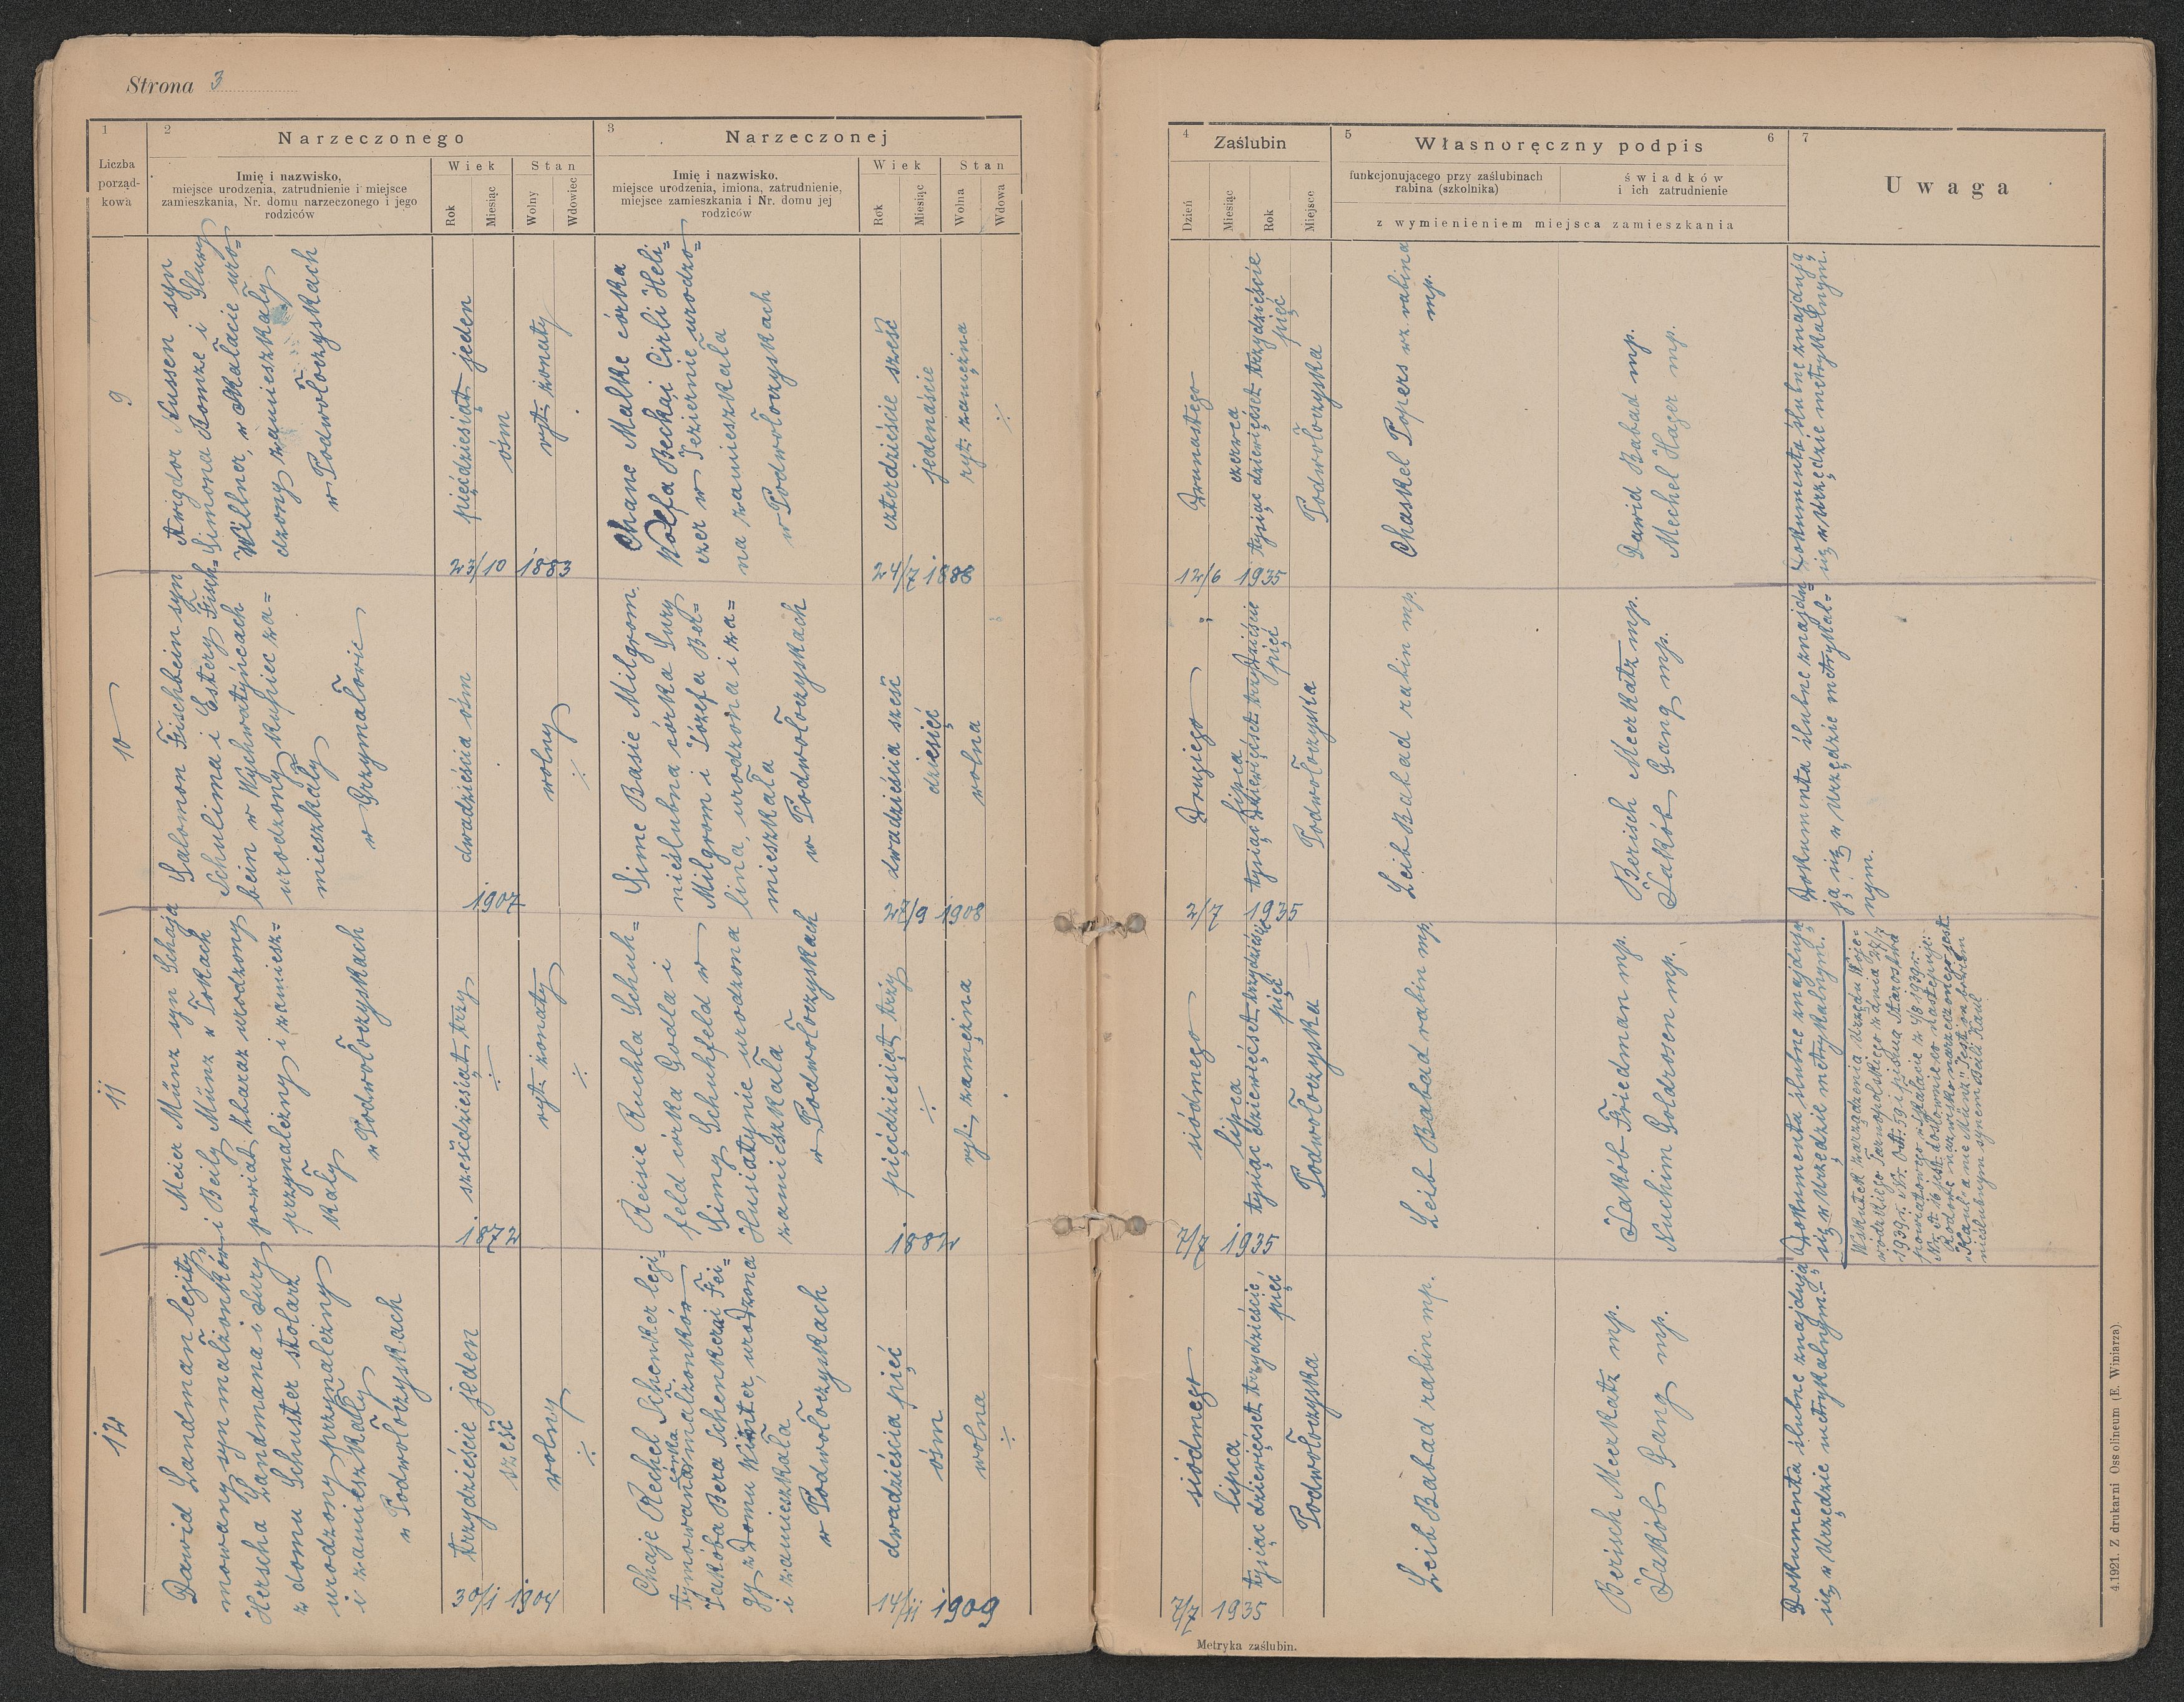 Strona 3
1
Liczba
porząd-
kowa
2
Narzeczonego
Imię i nazwisko,
miejsce urodzenia, zatrudnienie i miejsce
zamieszkania, Nr. domu narzeczonego i jego
rodziców
Wiek
Rok
Miesiąc
Stan
Wolny
Wdowiec
3
Narzeczonej
Imię i nazwisko,
miejsce urodzenia, imiona, zatrudnienie,
miejsce zamieszkania i Nr. domu jej
rodziców
Wiek
Rok
Miesiąc
Stan
Wolna
Wdowa
4
Zaślubin
Dzień
Miesiąc
Rok
Miejsce
5
Własnoręczny podpis
6
funkcjonującego przy zaślubinach
rabina (szkolnika)
świadków
i ich zatrudnienie
z wymienieniem miejsca zamieszkania
7
Uwaga
9
Awigdor Nussen syn
Simona Bonze i Slury
Wilner, w Skałacie uro=
dzony zamieszkały
w Podwołoczyskach
pięćdziesiąt jeden
ośm
23/10 1883
ryt: żonaty
Chane Malke córka
Wolfa Beckai Cirli Heli=
czer w Jeziernie urodzo=
na zamieszkała
w Podwołoczyskach
czterdzieście sześć
jedenaście
24/7 1888
ryt: zamężna
÷
Dwunastego
czerwca
tysiąc dziewięćset trzydzieście
pięć
Podwołoczyska
12/6 1935
Chaskel Popers wz. rabina
mp.
Dawid Babad mp.
Mechel Hager mp.
Dokumenta ślubne znajdują
się w Urzędzie metrykalnym.
10
Salomon Fischbein syn
Schulima i Estery Fisch=
bein w Wychwatyńcach
urodzony kupiec za=
mieszkały
w Grzymałowie
dwadzieścia ośm
1907
wolny
÷
Sime Basie Milgrom
nieślubna córka Sury
Milgrom i Józefa Bel=
lina, urodzona i za=
mieszkała
w Podwołoczyskach
dwadzieścia sześć
dziesięć
27/9 1908
wolna
Drugiego
lipca
tysiąc dziewięćset trzydzieście
pięć
Podwołoczyska
2/7 1935
Leib Babad rabin mp.
Berisch Meerkatz mp.
Jakób Gang mp.
Dokumenta ślubne znajdu=
ją się w Urzędzie metrykal=
nym.
11
Meier Münz syn Schaja
i Beily Münz w Tokach
powiat Zbaraż urodzony
przynależny i zamiesz=
kały
w Podwołoczyskach
sześćdziesiąt trzy
÷
1872
ryt: żonaty
÷
Reisie Ruchla Schuh=
feld córka Godla i
Simy Schuhfeld w
Husiatynie urodzona
zamieszkała
w Podwołoczyskach
pięćdziesiąt trzy
÷
1882
ryt. zamężna
siódmego
lipca
tysiąc dziewięćset trzydzieście
pięć
Podwołoczyska
7/7 1935
Leib Babad rabin mp.
Jakób Friedman mp.
Nuchim Goldrosen mp.
Dokumenta ślubne znajdują
się w Urzędzie metrykalnym.
Wskutek zarządzenia Urzędu Woje=
wódzkiego Tarnopolskiego z dnia
1939 r. i pisma Starostwa
powiatowego w Skałacie z 4/8 1939 r.
jest dosłownie co następuje:
Rodowe nazwisko narzeczonego jest
"Kaul" a nie "Münz" jest on bowiem
nieślubnym synem Beili Kaul
12
Dawid Landman legity=
mowany syn małżonków
Herscha Landmana i Sury
z domu Schuster stolarz
urodzony przynależny
i zamieszkały
w Podwołoczyskach
trzydzieście jeden
sześć
30/1 1904
wolny
÷
Chaje Rechel Schenker legi=
tymowana córka małżonków
Jakóba Bera Schenkera i Fei=
gy z domu Winter, urodzona
i zamieszkała
w Podwołoczyskach
dwadzieścia pięć
ośm
14/11 1909
wolna
÷
siódmego
lipca
tysiąc dziewięćset trzydzieście,
pięć
Podwołoczyska
7/7 1935
Leib Babad rabin mp.
Berisch Meerkatz mp.
Jakób Gang mp.
Dokumenta ślubne znajdują
się w Urzędzie metrykalnym.
Metryka zaślubin.
4.1921. Z drukarni Ossolineum (E. Winiarza).